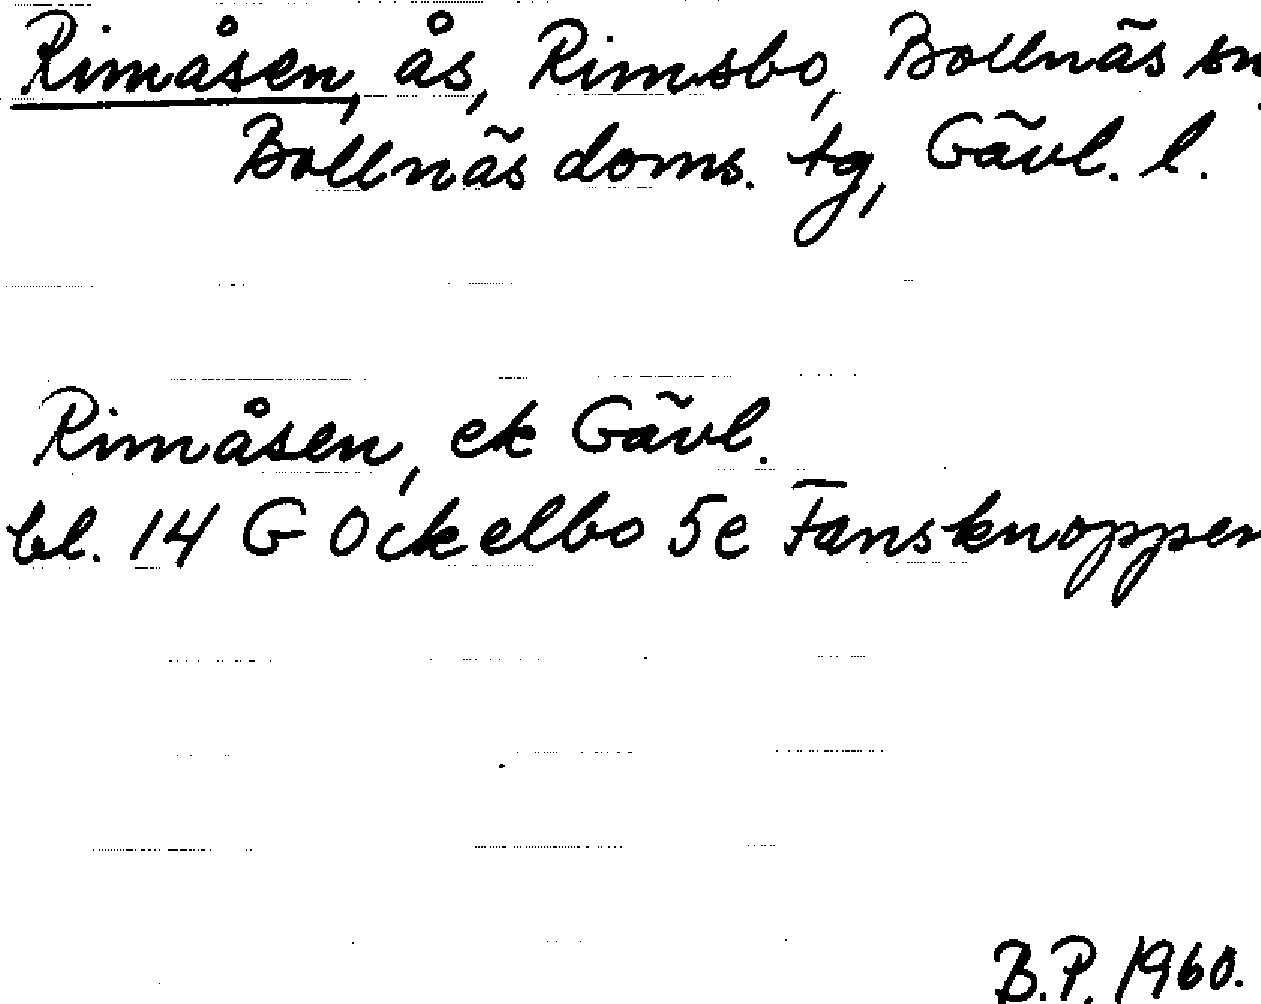 Rimåsen, ås, Rimsbo, Bollnäs sn
Bollnäs doms. tg, Gävl. l.
Rimåsen, ek Gävl.
bl. 14 G Ockelbo 5e Fansknoppen
B.P. 1960.